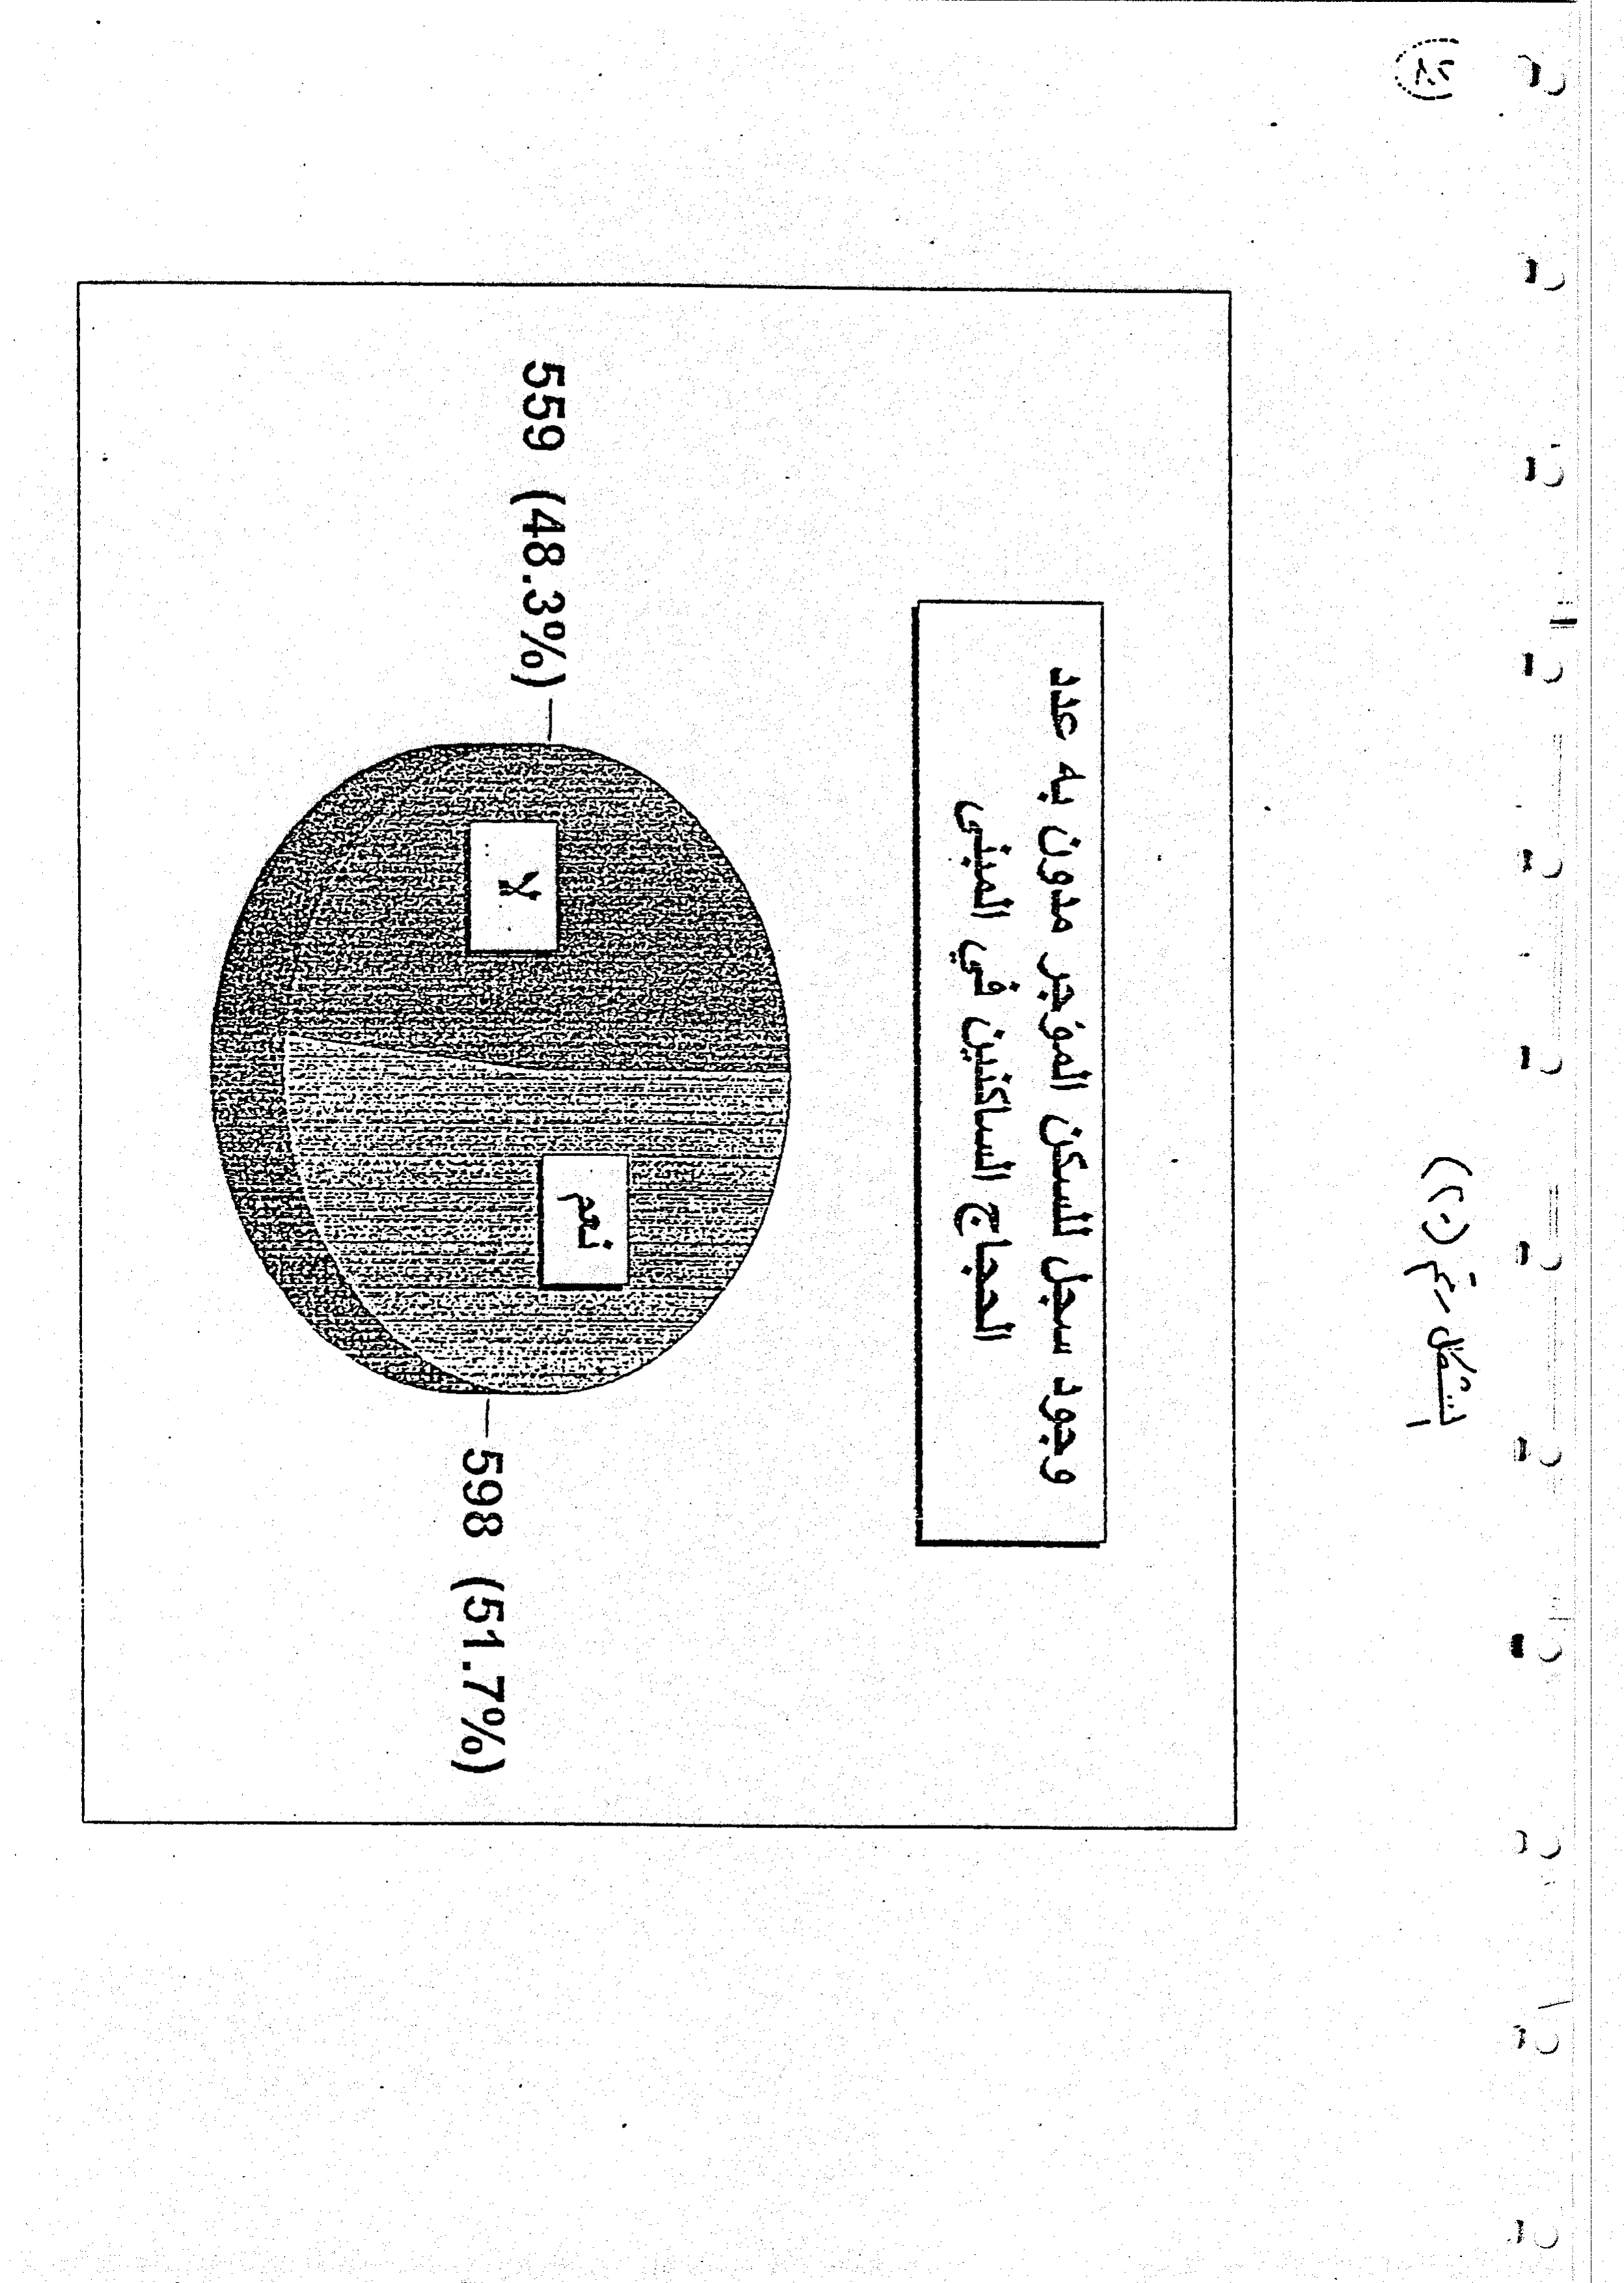 الشكل رقم (٢٠)
وجود سجل للسكن المؤجر مدون به عدد
الحجاج الساكنين في المبنى
559 (48.3%)
لا
نعم
598 (51.7%)